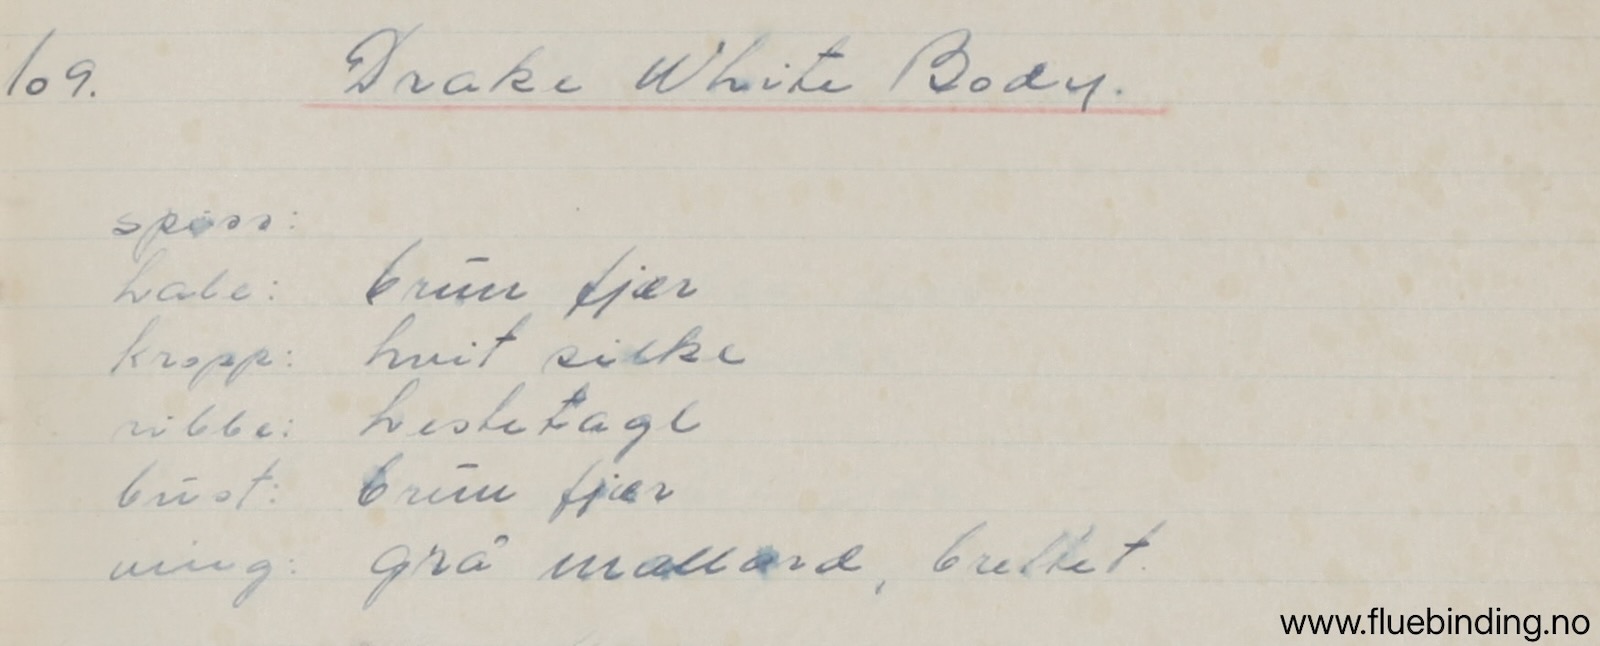 109. Drake White Body.
spiss:
hale: brun fjær
kropp: hvit silke
ribbe: hestetagl
bust: brun fjær
ving: grå mallard, brettet.
www.fluebinding.no